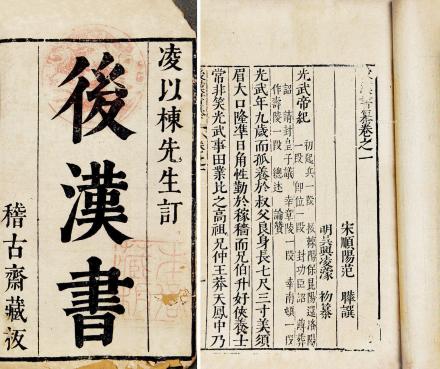 凌以棟先生訂
後漢書
稽古齋藏板
卷之一
宋順陽范 曄譔
明吳興凌濛 初纂
光武帝紀
初起兵一段
一段 即位一段 封功臣詔
詔 請封皇子議 幸章陵一段 幸南頓一段
作壽陵一段 總述 論贊
光武年九歲而孤養於叔父良身長七尺三寸美須
眉大口隆準日角性勤於稼穡而兄伯升好俠養士
常非笑光武事田業比之高祖兄仲王莽天鳳中乃